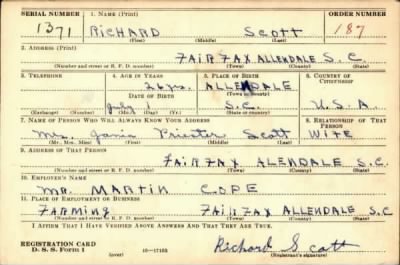 SERIAL NUMBER 1. NAME (Print) ORDER NUMBER
1371 RICHARD Scott 187
(First) (Middle) (Last)
2. ADDRESS (Print)
FAIRFAX ALLENDALE S.C.
(Number and street or R. F. D. number) (Town) (County) (State)
3. TELEPHONE 4. AGE IN YEARS 5. PLACE OF BIRTH 6. COUNTRY OF CITIZENSHIP
26 yrs. ALLENDALE
DATE OF BIRTH (Town or county)
July 1 S.C. U.S.A.
(Exchange) (Number) (Mo.) (Day) (Yr.) (State or country)
7. NAME OF PERSON WHO WILL ALWAYS KNOW YOUR ADDRESS 8. RELATIONSHIP OF THAT PERSON
Mrs. Janie Priester Scott WIFE
(Mr., Mrs., Miss) (First) (Middle) (Last)
9. ADDRESS OF THAT PERSON
FAIRFAX ALLENDALE S.C.
(Number and street or R. F. D. number) (Town) (County) (State)
10. EMPLOYER'S NAME
MR. MARTIN COPE
11. PLACE OF EMPLOYMENT OR BUSINESS
FARMING FAIRFAX ALLENDALE S.C
(Number and street or R. F. D. number) (Town) (County) (State)
I AFFIRM THAT I HAVE VERIFIED ABOVE ANSWERS AND THAT THEY ARE TRUE.
REGISTRATION CARD
D. S. S. Form 1 (over) 16—17105 Richard Scott
(Registrant's signature)